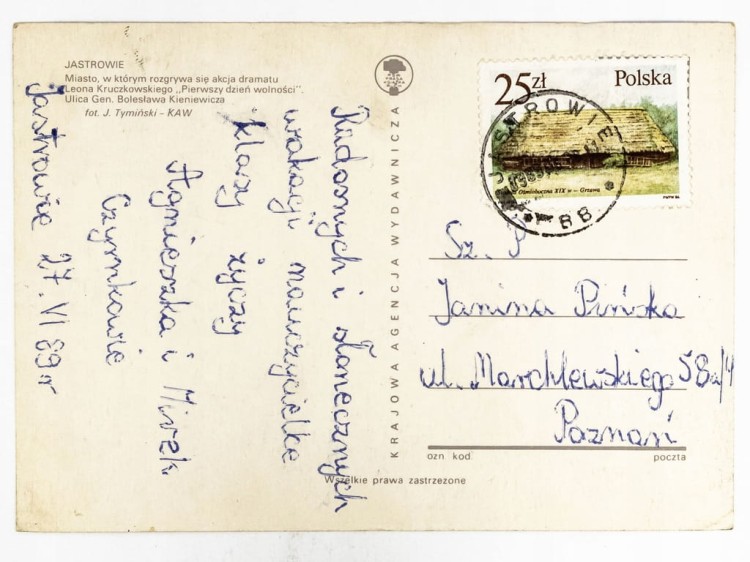 JASTROWIE
Miasto, w którym rozgrywa się akcja dramatu
Leona Kruczkowskiego „Pierwszy dzień wolności”.
Ulica Gen. Bolesława Kieniewicza
fot. J. Tymiński - KAW
Jastrowie 27. VI 89r
Radosnych i słonecznych
wakacji nauczycielka
klasy życzy
Agnieszka i Mirek
Czyrnkowie
KRAJOWA AGENCJA WYDAWNICZA
25 zł Polska
JASTROWIE
BB
Ośmioboczna XIX w - Grzawa
Sz. P
Janina Pińska
ul. Marchlewskiego 58a/4
Poznań
ozn kod poczta
Wszelkie prawa zastrzeżone